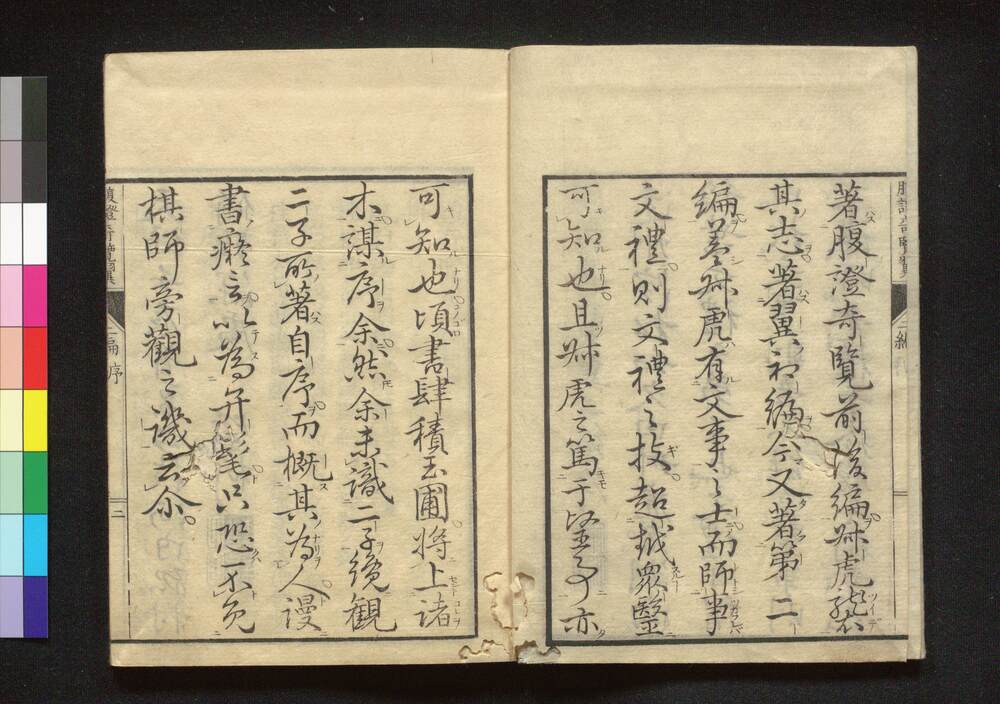 著腹證奇覽前後編叔虎襲
其志著翼初編今又著第二
編蓋叔虎有文事之士而師事
文禮則文禮之技超越衆醫
可知也且叔虎之篤于篤事亦
可知也頃書肆積玉圃將上諸
木謀序余然余未識二子纔觀
二子所著自序而概其為人謾
書癡言以為弁髦只恐不免
棋師旁觀之譏云尒
腹證奇覽翼
二編序
二